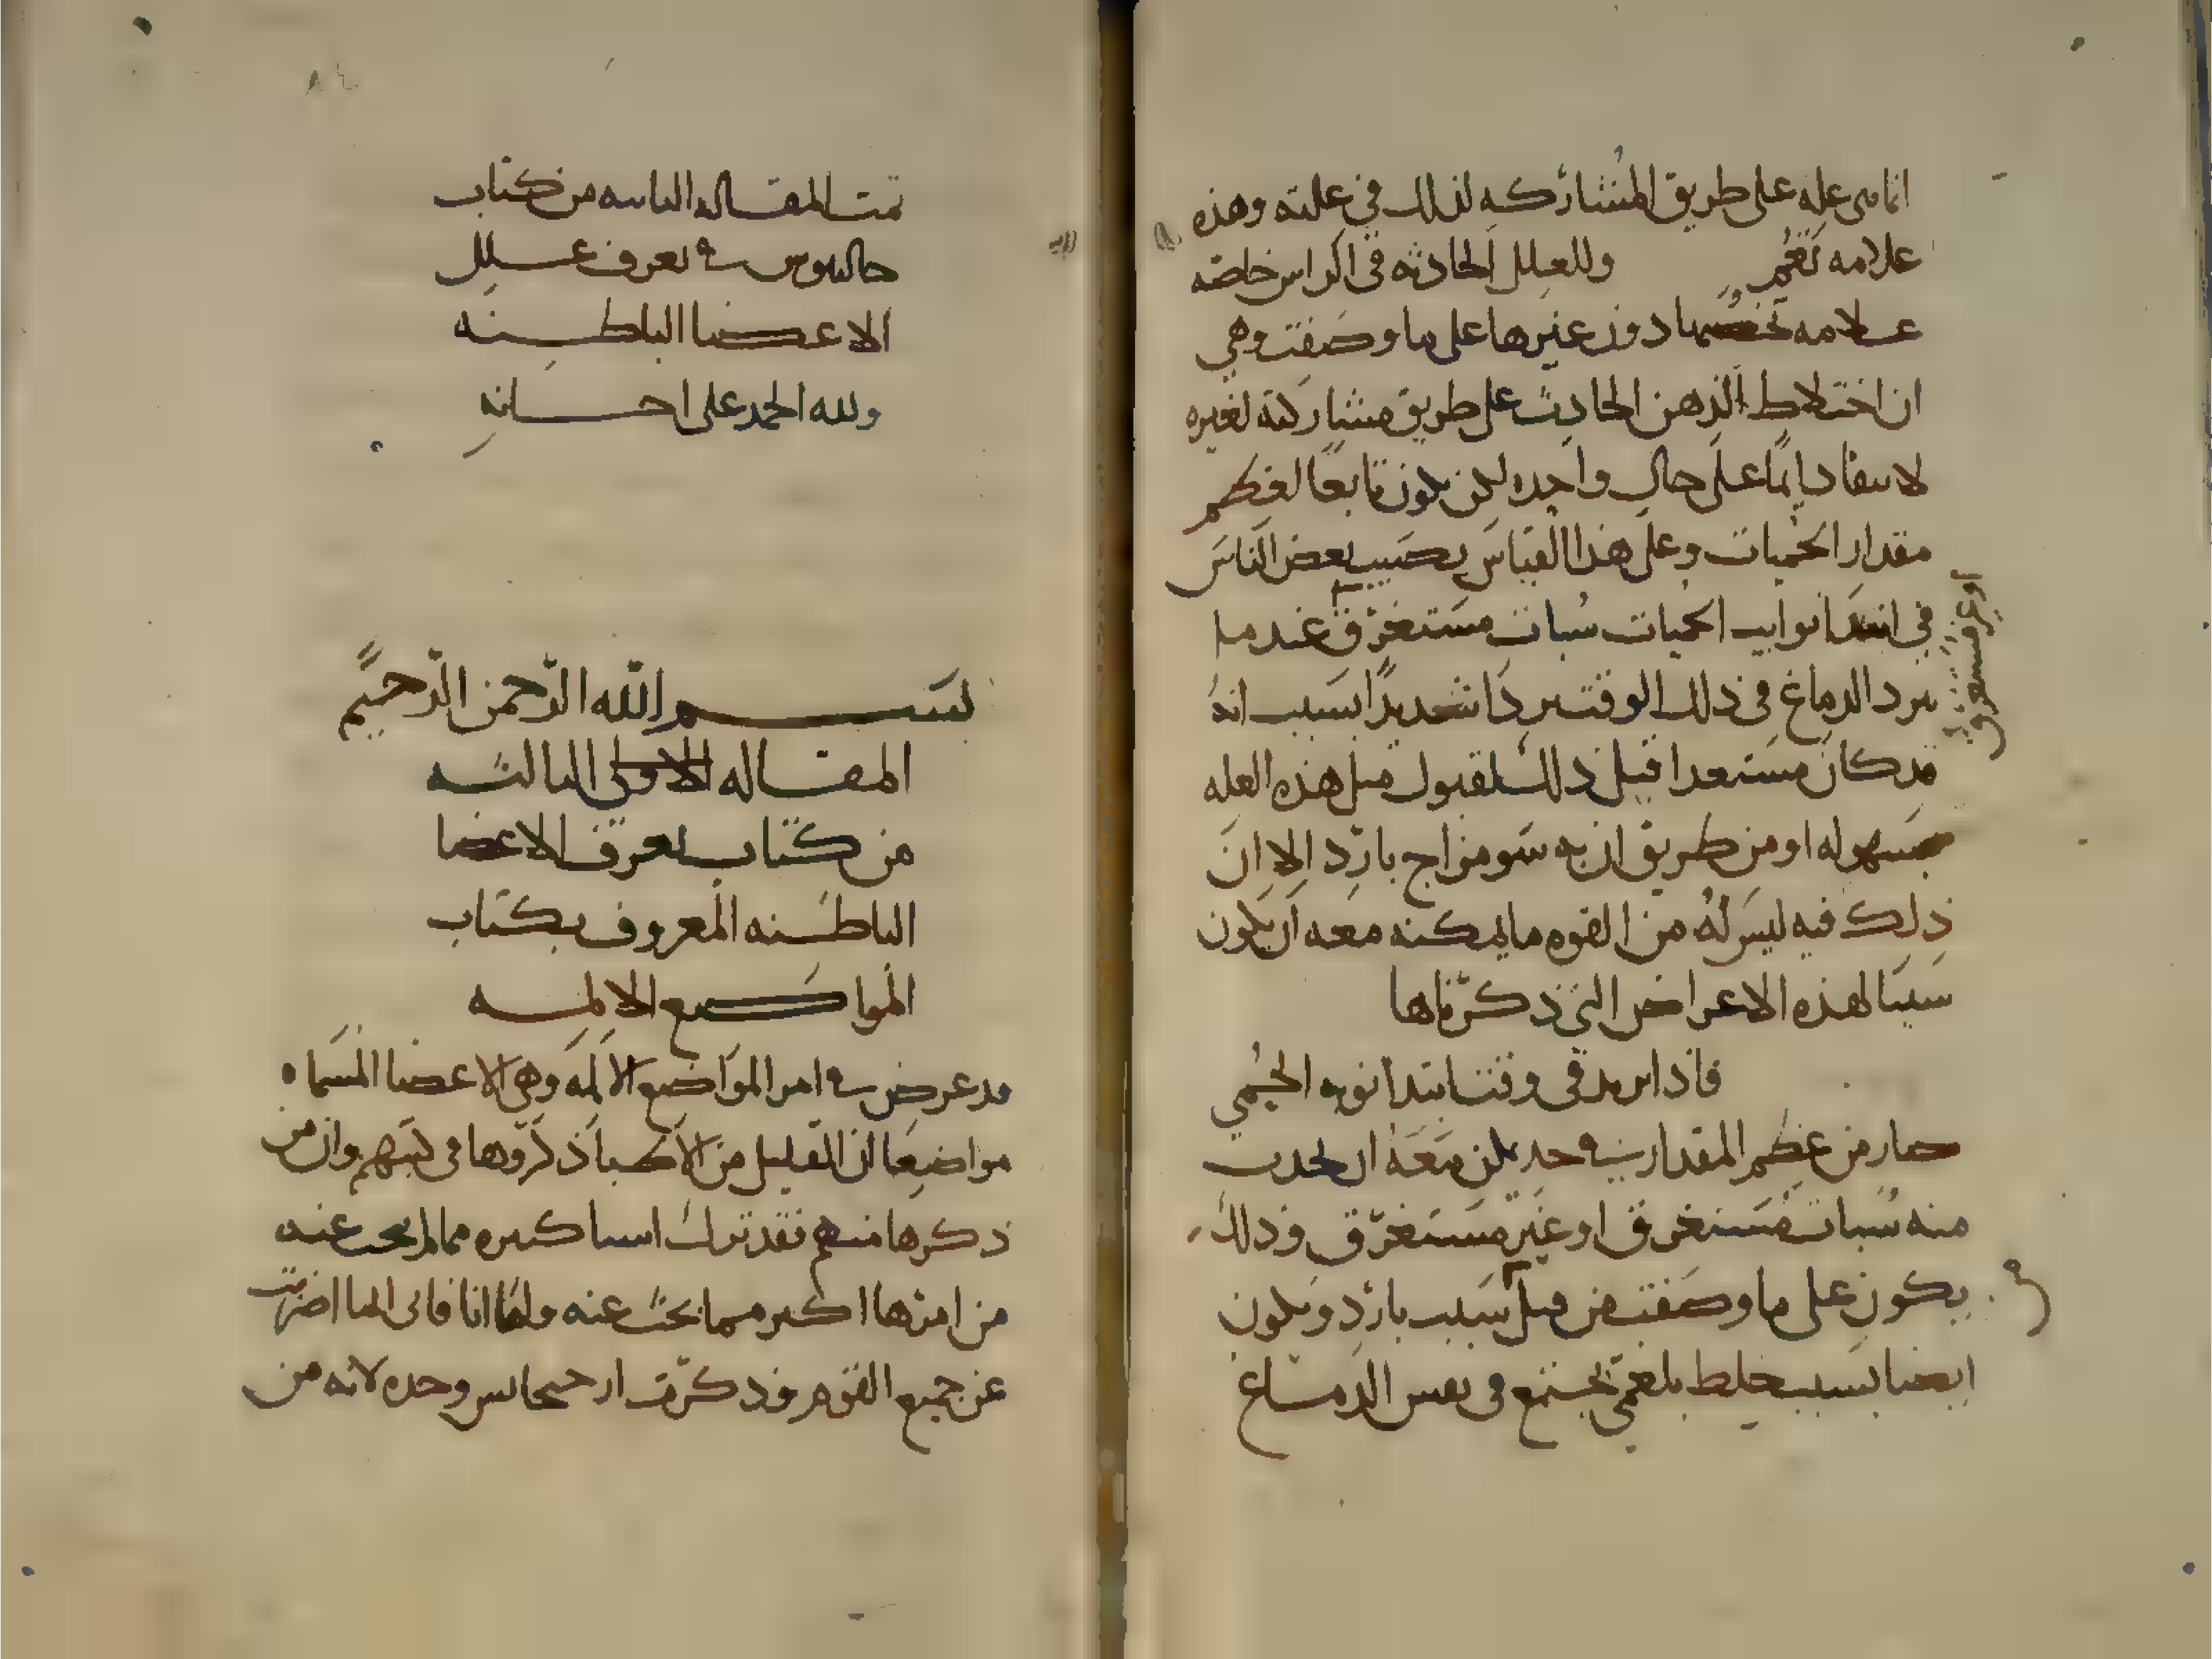 انما هى عله على طريق المشاركه لذلك في علته وهذه
علامه تعم وللعلل الحادثه في الراس خاصه
علامه تخصها دون غيرها على ما وصفت وهي
ان اختلاط الذهن الحادث على طريق مشاركته لغيره
لا يبقا دايما على حال واحده لكن يكون تابعا لعظم
مقدار الحميات وعلى هذا القياس يصيب بعض الناس
في ابتدا نوايب الحميات سبات مستغرق عند ما
او غير مستغرق
يبرد الدماغ في ذلك الوقت بردا شديدا بسبب انه
قد كان مستعدا قبل ذلك لقبول مثل هذه العله
بسهوله او من طريق ان به سو مزاج بارد الا ان
ذلك فيه ليس له من القوه ما يمكنه معه ان يكون
سببا لهذه الاعراض التي ذكرناها
فاذا تريد في وقت ابتدا نوبه الحمي
صار من عظم المقدار في حد يمكن معه ان يحدث
منه سبات مستغرق او غير مستغرق وذلك
يكون على ما وصفت من قبل سبب بارد ويكون
ايضا بسبب خلط بلغمي يجتمع في نفس الدماغ
تمت المقاله الثانيه من كتاب
جالينوس في تعرف علل
الاعضا الباطنه
ولله الحمد على احسانه
بسم الله الرحمن الرحيم
المقاله الاولى الثالثه
من كتاب تعرف الاعضا
الباطنه المعروف بكتاب
المواضع الالمه
قد عرض في امر المواضع الالمه وهي الاعضا المسماه
مواضيعا ان القليل من الاطبا ذكروها في كتبهم وان من
ذكرها منهم فقد ترك اشيا كثيره مما لم يبحث عنه
من امرها اكثر مما بحث عنه واما انا فاني لما اضربت
عن جميع القوم وذكرت ارخيجانس وحده لانه من